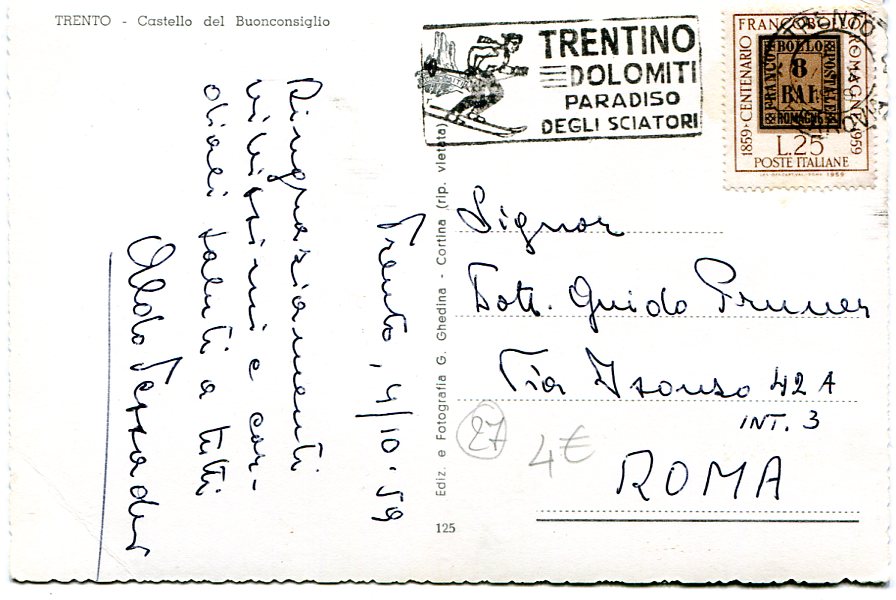 TRENTO - Castello del Buonconsiglio
TRENTINO
DOLOMITI
PARADISO
DEGLI SCIATORI
FRANCOBOLLO ROMAGNE
1859·CENTENARIO
1959
FRANCO BOLLO POSTALE
8
BAI
ROMAGNE
L.25
POSTE ITALIANE
Trento, 4/10·59
Ringraziamenti
vivissimi e cor-
diali saluti a tutti
Aldo
Ediz. e Fotografia G. Ghedina - Cortina (rip. vietata)
125
Signor
Dott. Guido Pruner
Via Isonzo 42 A
INT. 3
ROMA
27
4€